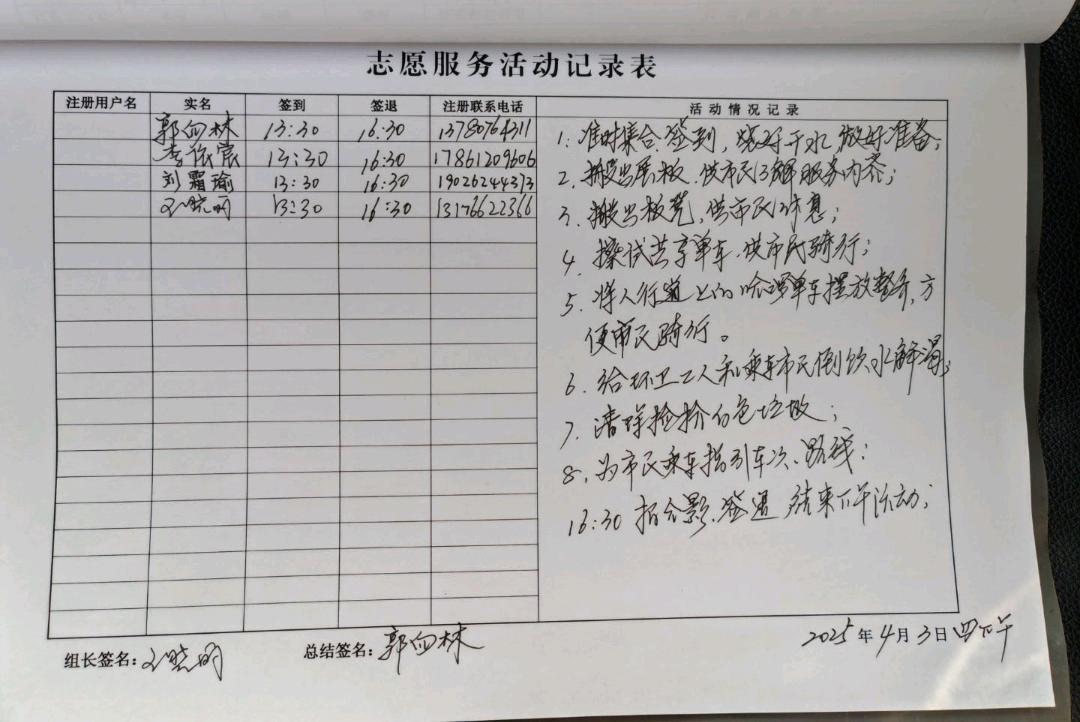 志愿服务活动记录表
注册用户名 实名 签到 签退 注册联系电话 活动情况记录
郭向林 13:30 16:30 13780764311
李依宸 13:30 16:30 17861209606
刘霜瑜 13:30 16:30 19026244373
王晓明 13:30 16:30 13176622366
1. 准时集合签到，烧好开水，做好准备；
2. 搬出展板，供市民了解服务内容；
3. 搬出板凳，供市民休息；
4. 擦拭共享单车，供市民骑行；
5. 将人行道上的哈啰单车摆放整齐，方
便市民骑行。
6. 给环卫工人和乘车市民倒饮水解渴；
7. 清理捡拾白色垃圾；
8. 为市民乘车指引车次、路线；
16:30 拍合影、签退 结束下午活动；
组长签名：王晓明 总结签名：郭向林
2025年4月3日 四下午